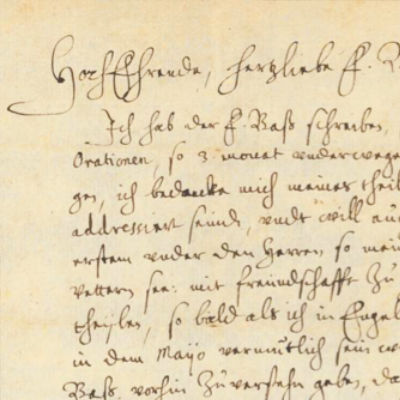 HochEhrende, hertzliebe F. B
Ich hab der F. Baß schreiben,
Orationen, so 3 monat underwege
gen, ich bedancke mich meines theil
addressiert seind, undt will au
erstem under den Herren so mei
vettern see: mit freündschafft Zu
theÿlen, so bald als ich in Engel
in dem Mayo vermutlich sein w
Baß, vorhin Zuversehn geben, da